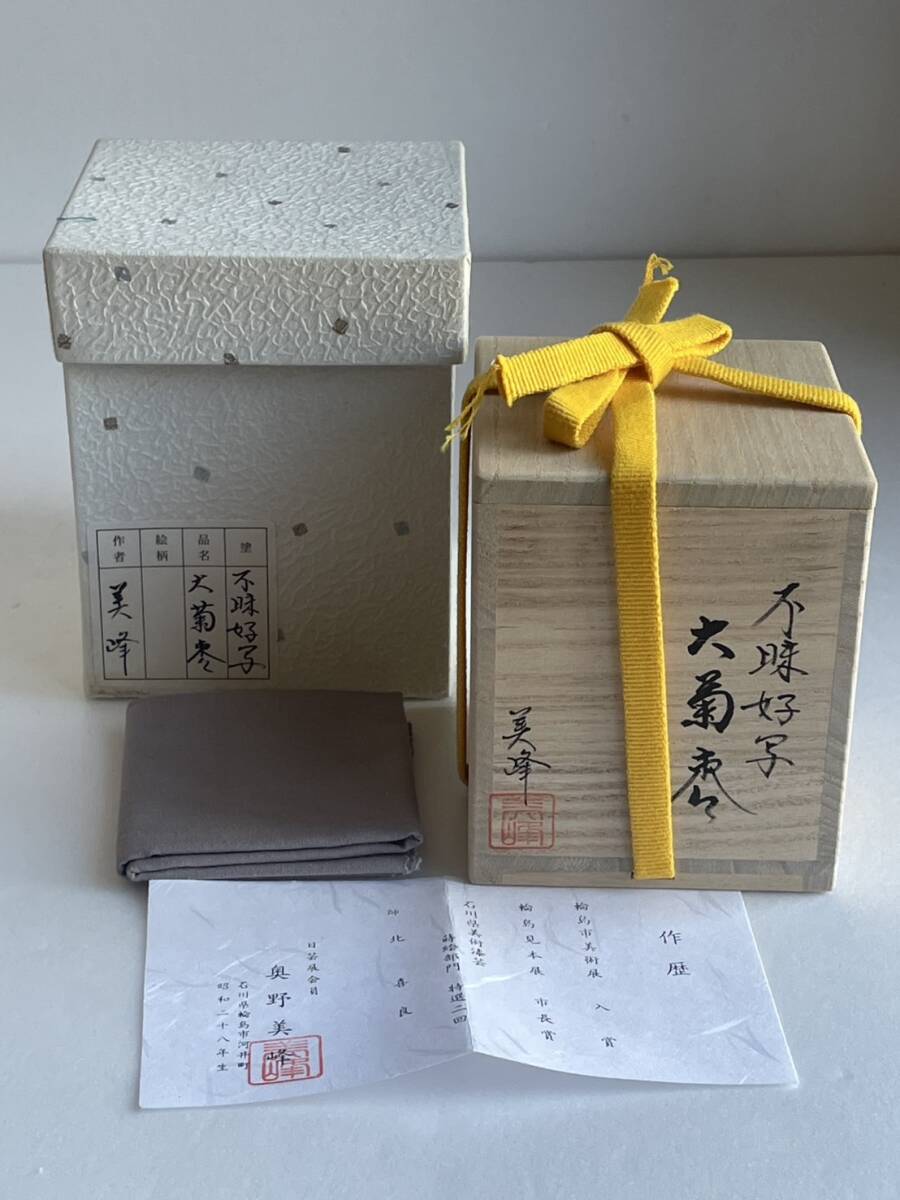 塗
不昧好写
品名
大菊棗
絵柄
作者
美峰
不昧好写
大菊棗
美峰
美峰
作歴
輪島市美術展 入賞
輪島見本展 市長賞
石川県美術漆芸
蒔絵部門 特選二回
師 北 喜良
日芸展会員
奥野美峰
石川県輪島市河井町
昭和二十八年生